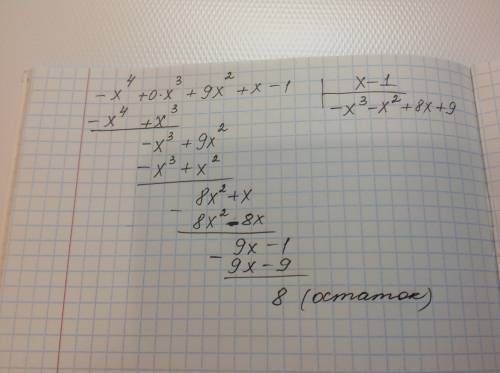 -x⁴ + 0·x³ + 9x² + x - 1 | x - 1
-x⁴ + x³ | -x³ - x² + 8x + 9
-x³ + 9x²
-x³ + x²
8x² + x
- 8x² - 8x
- 9x - 1
9x - 9
8 (остаток)